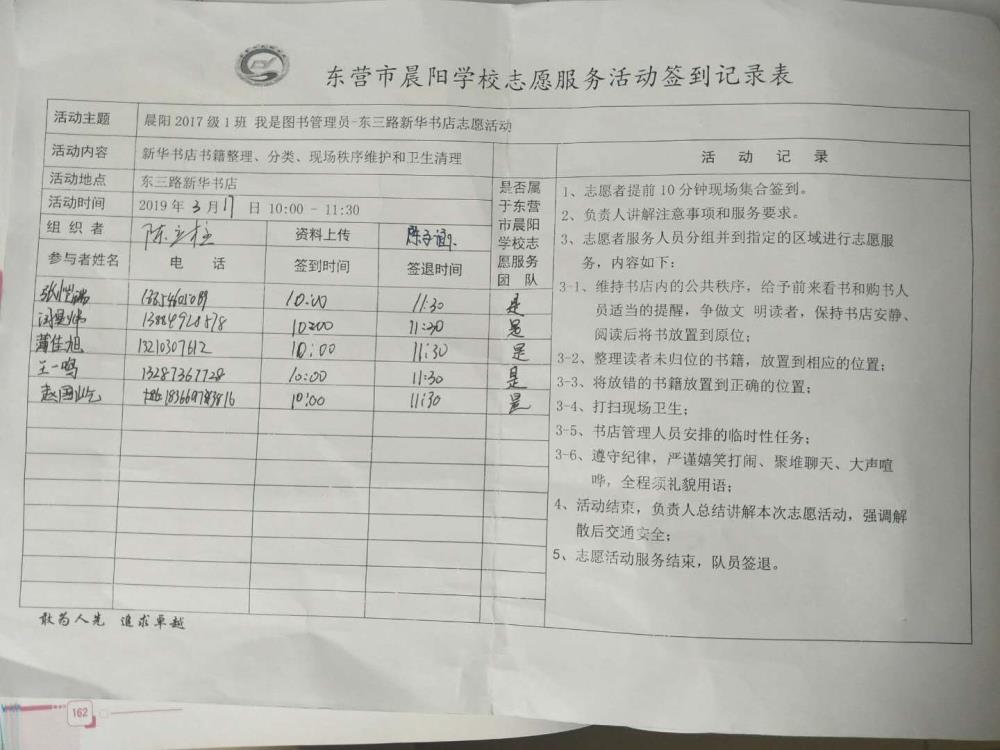 东营市晨阳学校志愿服务活动签到记录表
活动主题 晨阳 2017 级 1 班 我是图书管理员-东三路新华书店志愿活动
活动内容 新华书店书籍整理、分类、现场秩序维护和卫生清理
活动地点 东三路新华书店
活动时间 2019 年 3 月 17 日 10:00 - 11:30
组 织 者 陈立柱 资料上传
参与者姓名 电 话 签到时间 签退时间
是否属于东营市晨阳学校志愿服务团 队
10:00 11:30 是
13884928578 10:00 11:30 是
薄佳旭 13210307612 10:00 11:30 是
王一鸣 13287367728 10:00 11:30 是
18366983816 10:00 11:30 是
敢为人先 追求卓越
活 动 记 录
1、志愿者提前 10 分钟现场集合签到。
2、负责人讲解注意事项和服务要求。
3、志愿者服务人员分组并到指定的区域进行志愿服
务，内容如下：
3-1、维持书店内的公共秩序，给予前来看书和购书人
员适当的提醒，争做文 明读者，保持书店安静、
阅读后将书放置到原位；
3-2、整理读者未归位的书籍，放置到相应的位置；
3-3、将放错的书籍放置到正确的位置；
3-4、打扫现场卫生；
3-5、书店管理人员安排的临时性任务；
3-6、遵守纪律，严谨嬉笑打闹、聚堆聊天、大声喧
哗，全程须礼貌用语；
4、活动结束，负责人总结讲解本次志愿活动，强调解
散后交通安全；
5、志愿活动服务结束，队员签退。
162